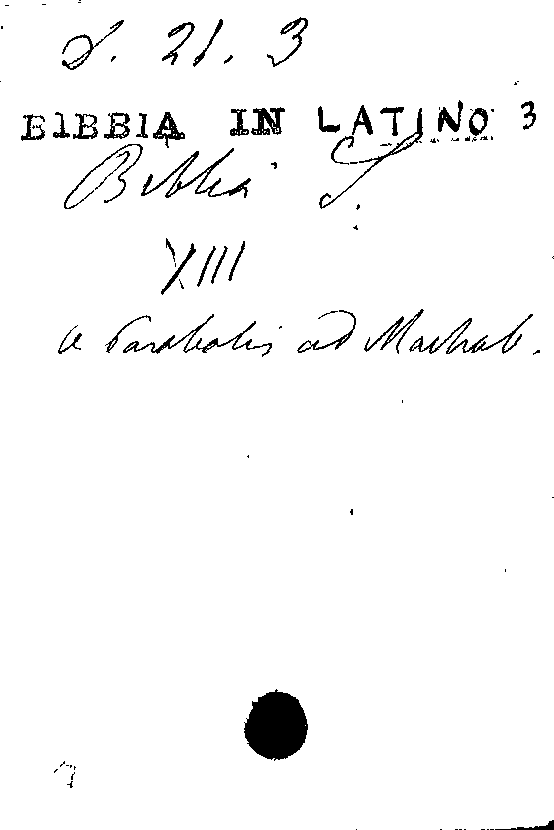 S. 21. 3
BIBBIA IN LATINO 3
Biblia S.
XIII
a Parabolis ad Machab.